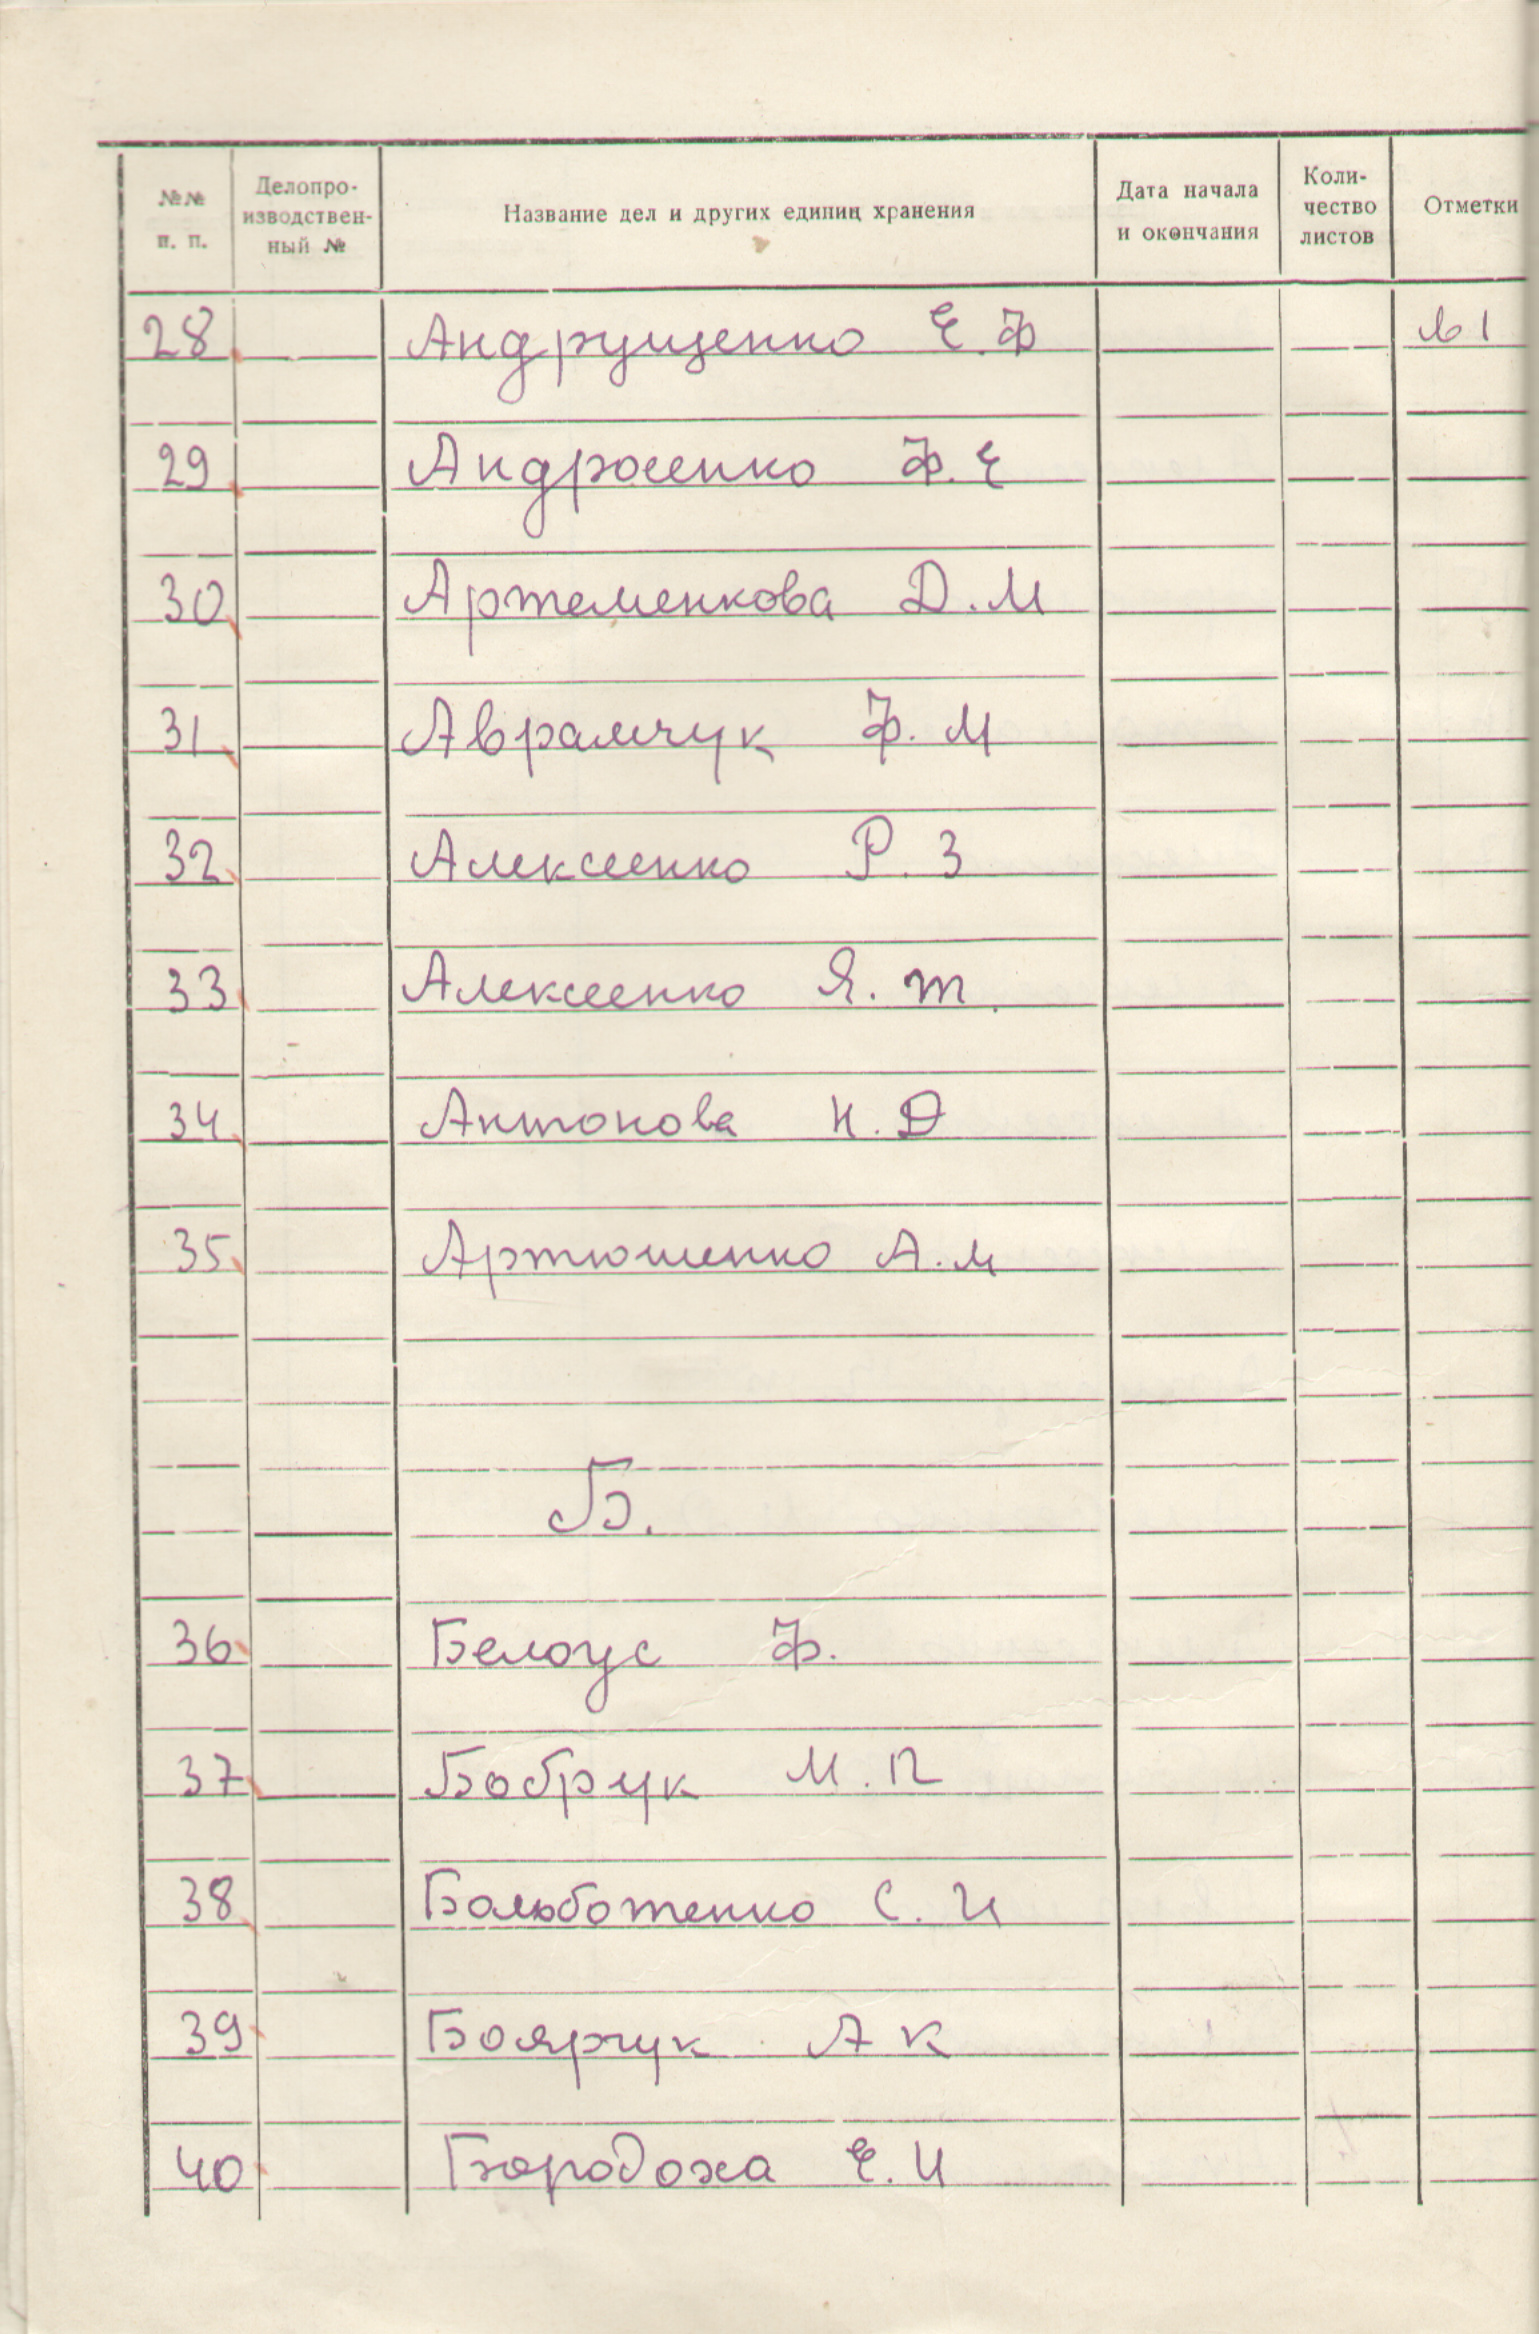 №№ п. п. Делопро-изводствен-ный № Название дел и других единиц хранения Дата начала и окончания Коли-чество листов Отметки
28 Андрущенко Е. Ф
29 Андросенко Ф. Е
30 Артеменкова Д. М
31 Аврамчук Ф. М
32 Алексеенко Р. З
33 Алексеенко Я. Т.
34 Антонова Н. Д
35 Артюшенко А. М
Б.
36 Белоус Ф.
37 Бобрук М. П
38 Больботенко С. И
39 Боярчук А К
40 Е. И